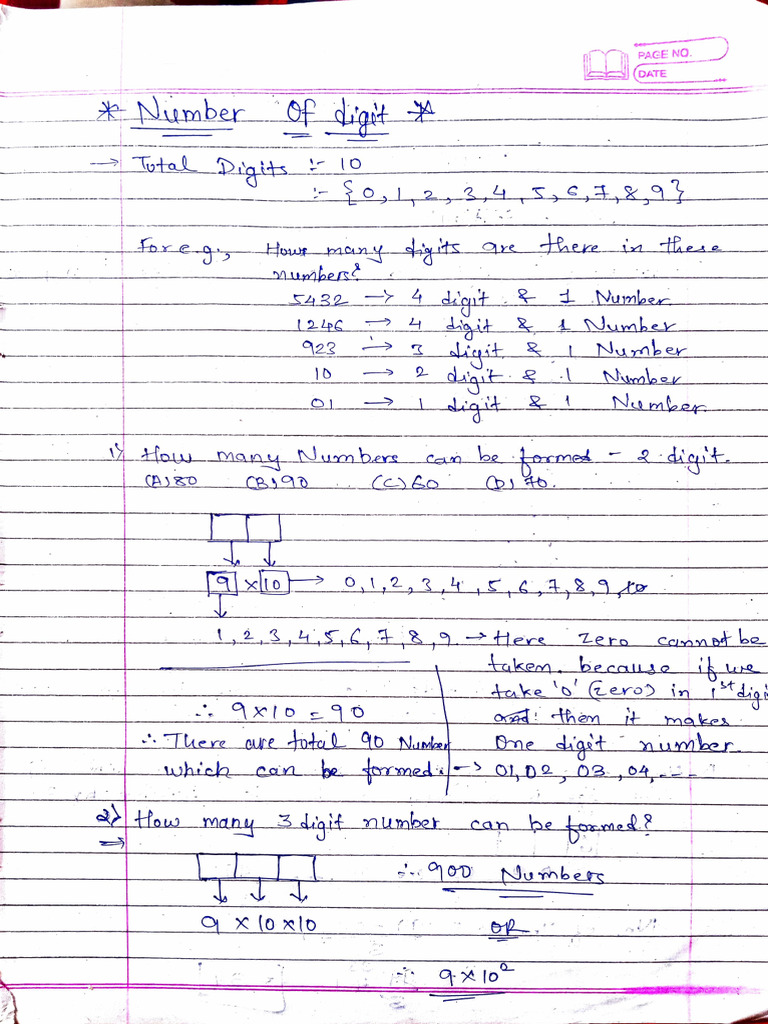 PAGE NO.
DATE
* Number Of digit *
→ Total Digits :- 10
:- {0, 1, 2, 3, 4, 5, 6, 7, 8, 9}
For e.g., How many digits are there in these
numbers?
5432 → 4 digit & 1 Number
1246 → 4 digit & 1 Number
923 → 3 digit & 1 Number
10 → 2 digit & 1 Number
01 → 1 digit & 1 Number.
1) How many Numbers can be formed - 2 digit.
(A) 80 (B) 90 (C) 60 (D) 70.
9 × 10 → 0, 1, 2, 3, 4, 5, 6, 7, 8, 9,
1, 2, 3, 4, 5, 6, 7, 8, 9. → Here Zero cannot be
taken because if we
take '0' (Zero) in 1st digi
then it makes
One digit number
→ 01, 02, 03, 04, ---
∴ 9×10 = 90
∴ There are total 90 Number
which can be formed.
2) How many 3 digit number can be formed?
∴ 900 Numbers
9 × 10 × 10
OR
∴ 9×10²